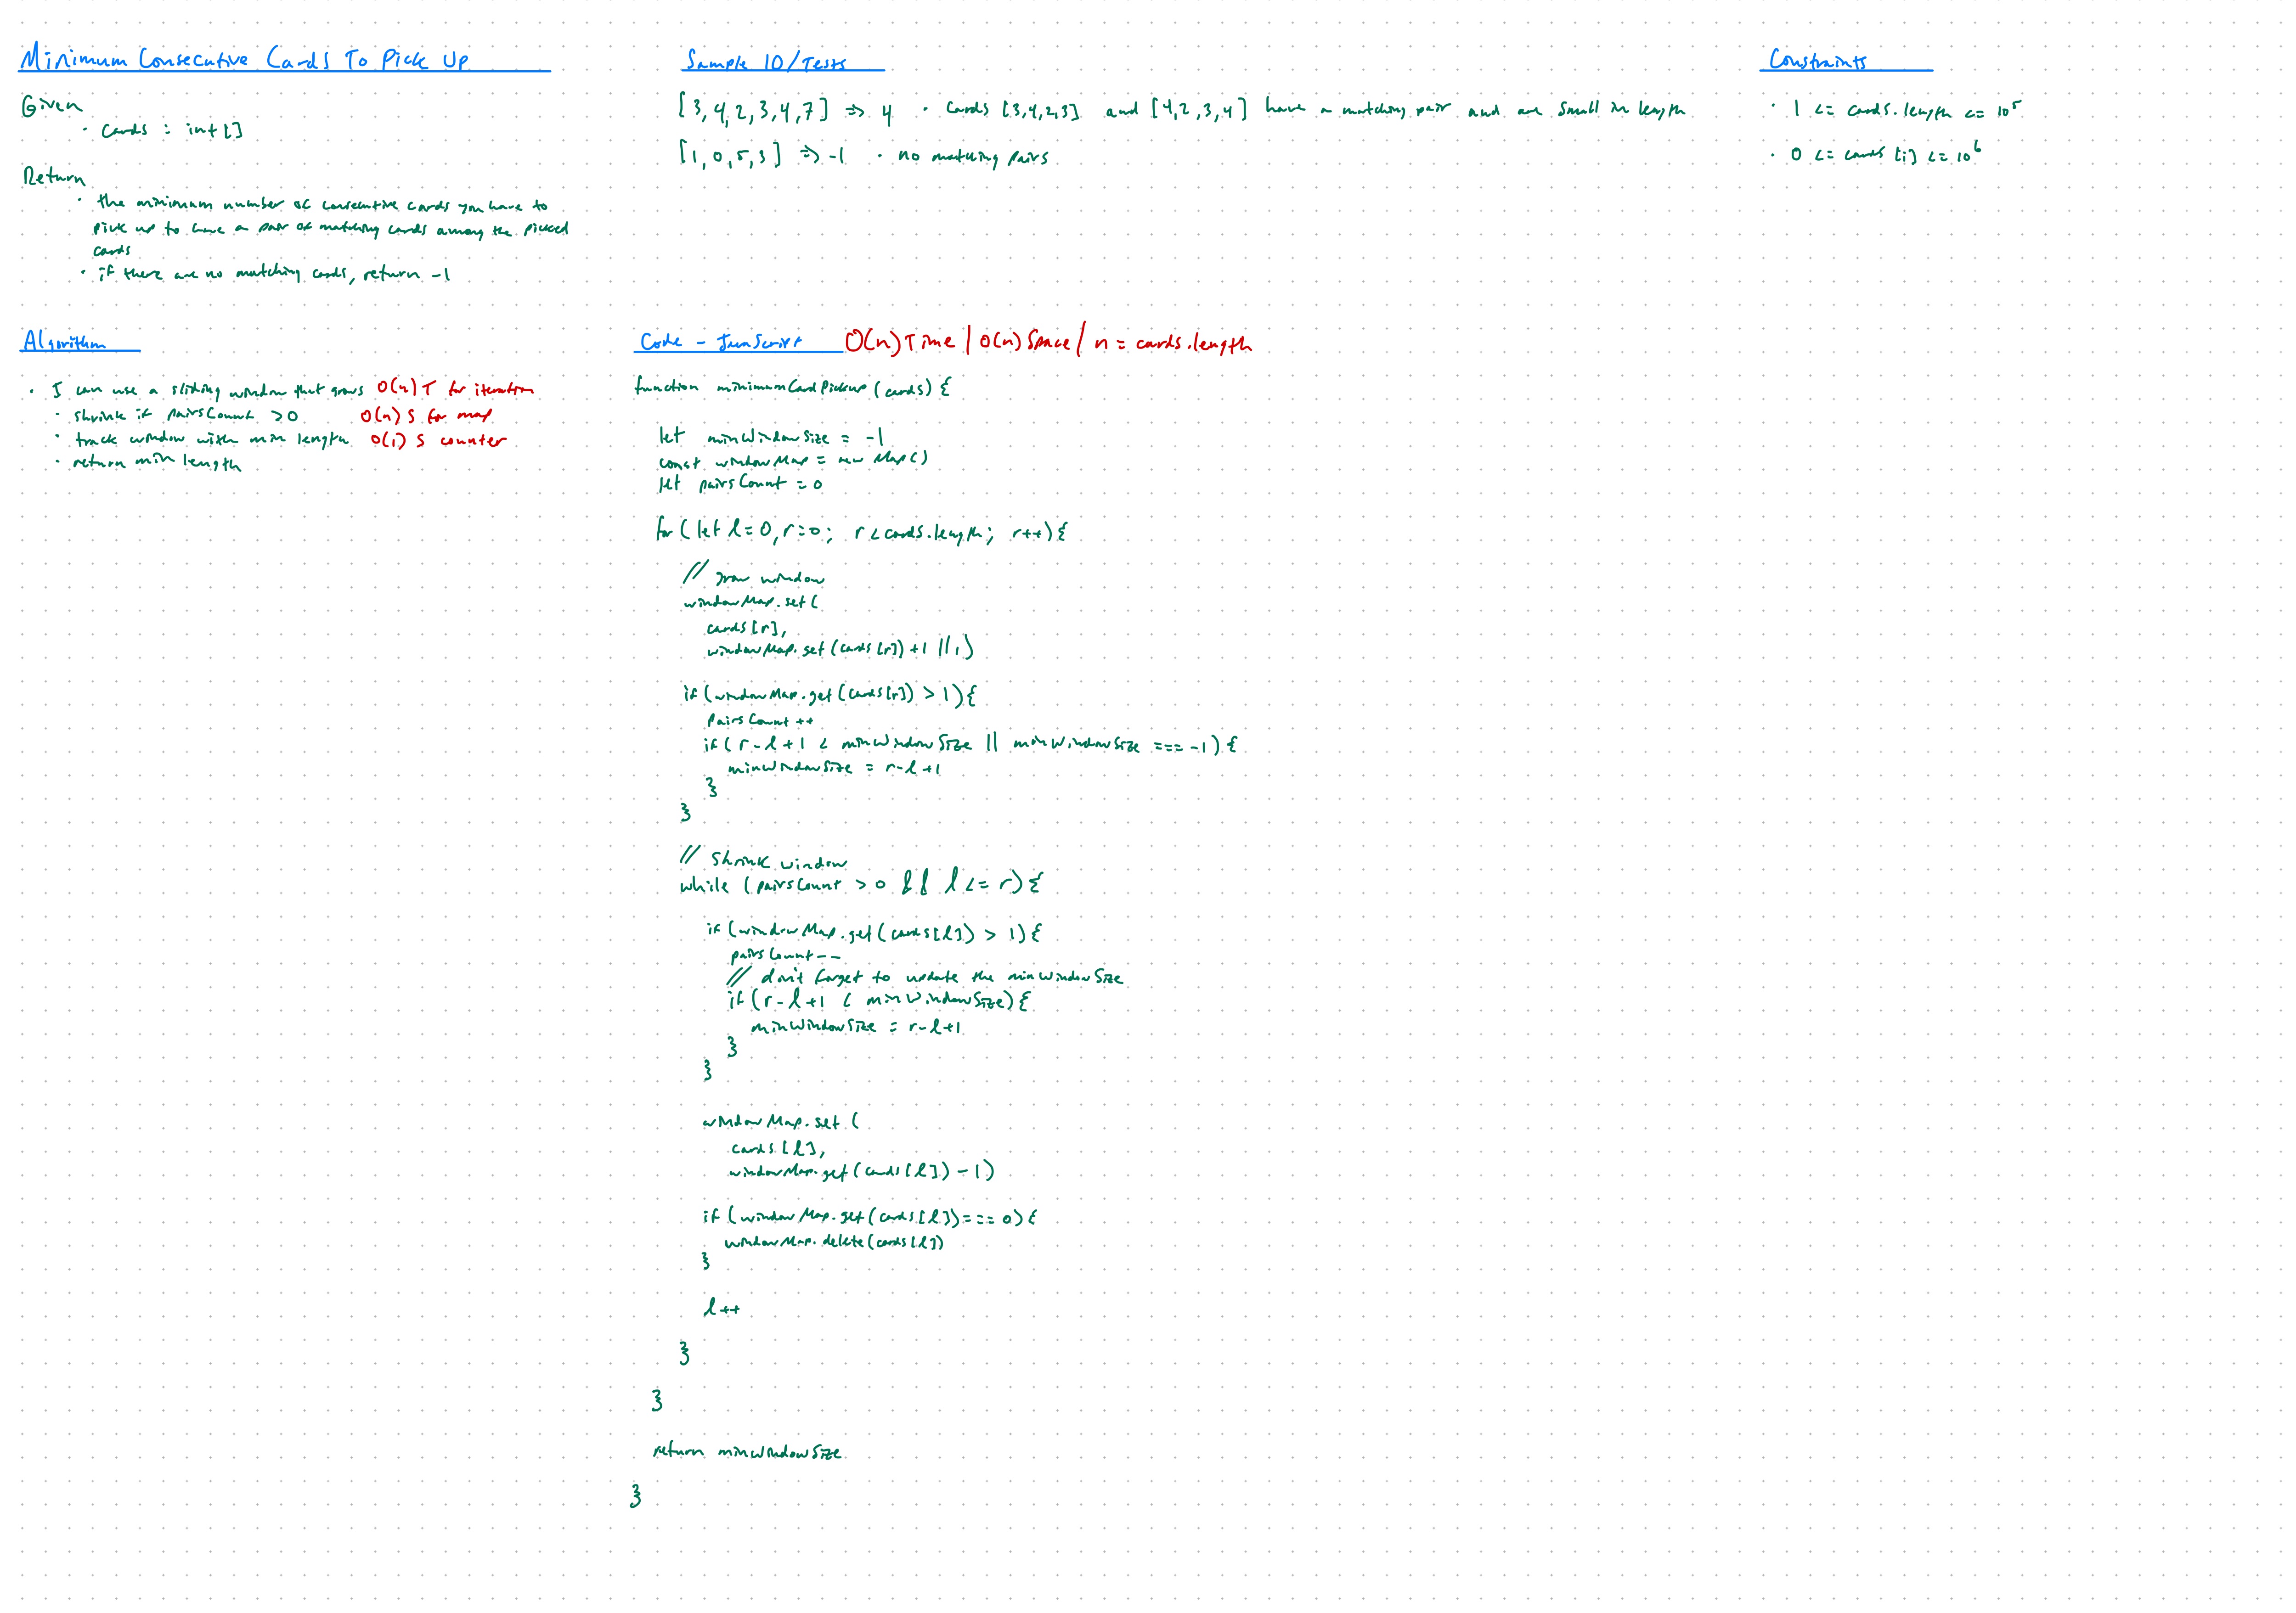 Minimum Consecutive Cards To Pick Up
Given
· cards : int[]
Return
· the minimum number of consecutive cards you have to
pick up to have a pair of matching cards among the picked
cards
· if there are no matching cards, return -1
Sample IO/Tests
[3,4,2,3,4,7] => 4 · cards [3,4,2,3] and [4,2,3,4] have a matching pair and are small in length
[1,0,5,3] => -1 · no matching pairs
Constraints
· 1 <= cards.length <= 10^5
· 0 <= cards[i] <= 10^6
Algorithm
· I can use a sliding window that grows O(n) T for iteration
· shrink if pairsCount >0 O(n) S for map
· track window with min length O(1) S counter
· return min length
Code - JavaScript O(n) Time / O(n) Space / n = cards.length
function minimumCardPickup(cards) {
let minWindowSize = -1
const windowMap = new Map()
let pairsCount = 0
for (let l=0, r=0; r<cards.length; r++){
// grow window
windowMap.set(
cards[r],
windowMap.set(cards[r])+1 ||1)
if(windowMap.get(cards[r]) > 1){
pairsCount++
if(r-l+1 < minWindowSize || minWindowSize === -1){
minWindowSize = r-l+1
}
}
// shrink window
while (pairsCount > 0 && l <= r){
if(windowMap.get(cards[l]) > 1){
pairsCount--
// don't forget to update the minWindowSize
if(r-l+1 < minWindowSize){
minWindowSize = r-l+1
}
}
windowMap.set(
cards[l],
windowMap.get(cards[l]) -1)
if(windowMap.get(cards[l])=== 0){
windowMap.delete(cards[l])
}
l++
}
}
return minWindowSize
}